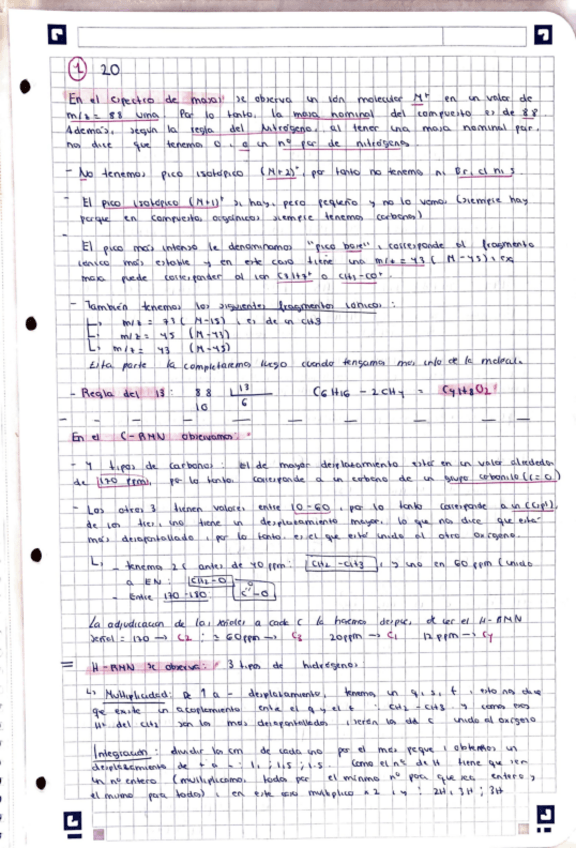 1 20
En el espectro de masas se observa un ión molecular M+ en un valor de
m/z = 88 uma. Por lo tanto, la masa nominal del compuesto es de 88
Además, según la regla del Nitrógeno, al tener una masa nominal par,
nos dice que tenemos 0, o un nº par de nitrógenos.
- No tenemos pico isotópico (M+2)+, por tanto no tenemos ni Br, Cl ni S.
- El pico isotópico (M+1)+ si hay, pero pequeño y no lo vemos (siempre hay
porque en compuestos orgánicos siempre tenemos carbono)
- El pico más intenso le denominamos "pico base", corresponde al fragmento
iónico más estable y en este caso tiene una m/z = 43 (M-45), esa
masa puede corresponder al ion C3H7+ o CH3-CO+.
- También tenemos los siguientes fragmentos iónicos:
m/z = 73 (M-15), es de un CH3
m/z = 45 (M-43)
m/z = 43 (M-45)
Esta parte la completaremos luego cuando tengamos más info de la molécula
- Regla del 13: 88 13 C6H16 - 2CH4 = C4H8O2
10 6
En el C-RMN observamos:
- 4 tipos de carbono: el de mayor desplazamiento está en un valor alrededor
de 170 ppm, por lo tanto corresponde a un carbono de un grupo carbonilo (C=O)
- Los otros 3 tienen valores entre 10-60, por lo tanto corresponde a un C(sp3),
de los tres, uno tiene un desplazamiento mayor, lo que nos dice que está
más desapantallado, por lo tanto, es el que está unido al otro oxígeno.
- tenemos 2C antes de 40 ppm: CH2-CH3, y uno en 60 ppm (unido
a EN: CH2-O
- Entre 170-180: O C-O
La adjudicación de las señales a cada C la hacemos después de ver el H-RMN
señal = 170 → C2; ≈ 60ppm → C3 20ppm → C1 12ppm → C4
= H-RMN se observa: 3 tipos de hidrógenos
Multiplicidad: De + a - desplazamiento, tenemos un q, s, t, esto nos dice
que existe un acoplamiento entre el q y el t: CH2-CH3. Y como los
H del CH2 son los más desapantallados, serán los del C unido al oxígeno
Integración: dividir los cm de cada uno por el más peque, obtenemos un
desplazamiento de + a -: 1; 1,5; 1,5. Como el nº de H tiene que ser
un nº entero (multiplicamos todos por el mínimo nº para que sea entero y
el mismo para todos), en este caso multiplico x 2, y: 2H; 3H; 3H